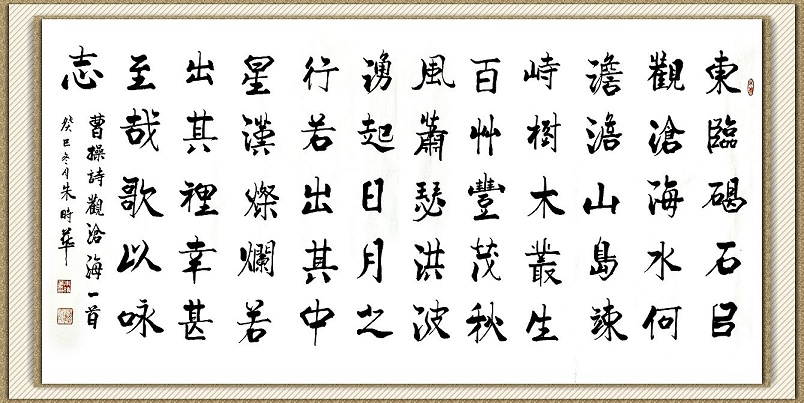 東臨碣石㠯
觀滄海水何
澹澹山島竦
峙樹木叢生
百艸豐茂秋
風蕭瑟洪波
湧起日月之
行若出其中
星漢燦爛若
出其裡幸甚
至哉歌以咏
志
曹操詩觀滄海一首
癸巳冬月朱時華